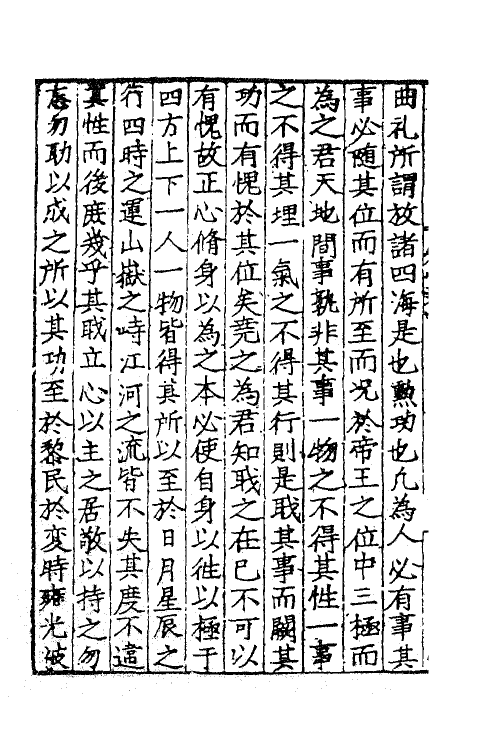 曲礼所謂放諸四海是也勲功也凢為人必有事其
事必随其位而有所至而况於帝王之位中三極而
為之君天地間事孰非其事一物之不得其性一事
之不得其埋一氣之不得其行則是戢其事而闕其
功而有愧於其位矣尭之為君知戢之在已不可以
有愧故正心脩身以為之本必使自身以徃以極于
四方上下一人一物皆得其所以至於日月星辰之
行四時之運山嶽之峙江河之流皆不失其度不違
其性而後庶幾乎其戢立心以主之居敬以持之勿
忘勿助以成之所以其功至於黎民於变時雍光被